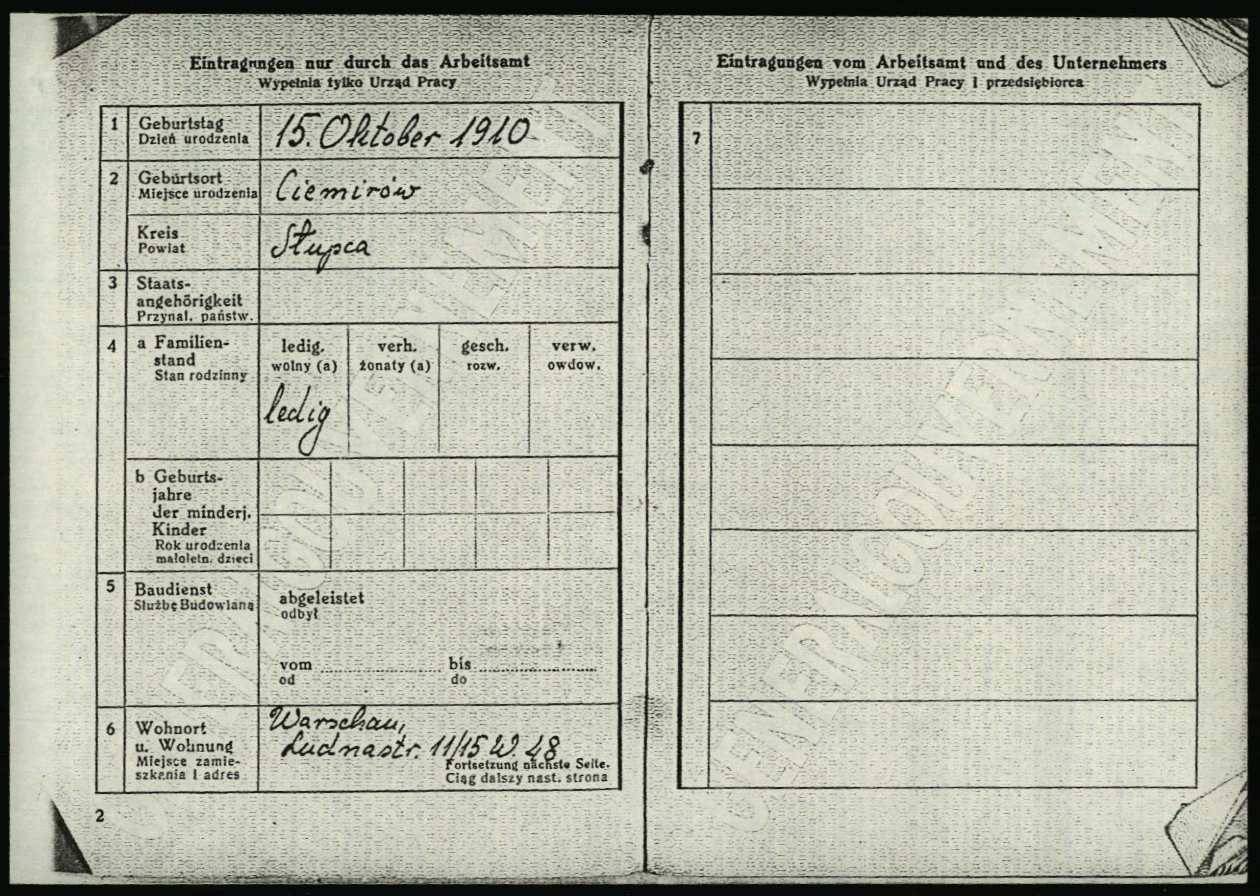 Eintragungen nur durch das Arbeitsamt
Wypełnia tylko Urząd Pracy
1 Geburtstag 15. Oktober 1910
Dzień urodzenia
2 Geburtsort Ciemirów
Miejsce urodzenia
Kreis Słupca
Powiat
3 Staats-
angehörigkeit
Przynal. państw.
4 a Familien-
stand
Stan rodzinny
ledig. verh. gesch. verw.
wolny (a) żonaty (a) rozw. owdow.
ledig
b Geburts-
jahre
der minderj.
Kinder
Rok urodzenia
małoletn. dzieci
5 Baudienst abgeleistet
Służbę Budowlaną odbył
vom bis
od do
6 Wohnort Warschau,
u. Wohnung Ludnastr. 11/15 W. 48
Miejsce zamie-
szkania i adres
Fortsetzung nächste Seite.
Ciąg dalszy nast. strona
2
Eintragungen vom Arbeitsamt und des Unternehmers
Wypełnia Urząd Pracy i przedsiębiorca
7
GENERALGOUVERNEMENT
GENERALGOUVERNEMENT